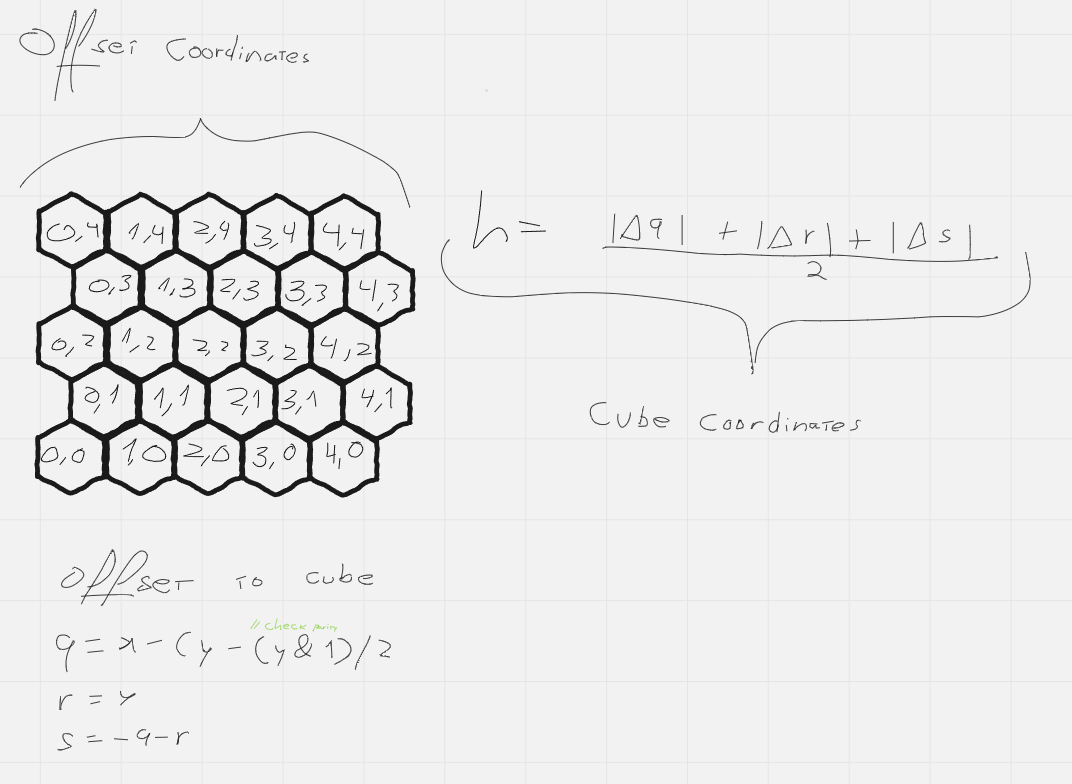 Offset Coordinates
0,4 1,4 2,4 3,4 4,4
0,3 1,3 2,3 3,3 4,3
0,2 1,2 2,2 3,2 4,2
0,1 1,1 2,1 3,1 4,1
0,0 1,0 2,0 3,0 4,0
h = |Δq| + |Δr| + |Δs|
2
Cube Coordinates
Offset to cube
// check parity
q = x - (y - (y & 1)/2
r = y
s = -q-r